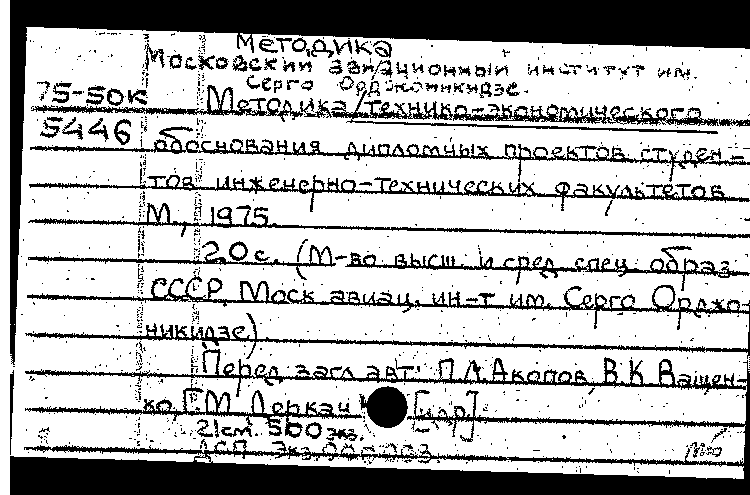 Методика
Московский авиационный институт им.
Серго Орджоникидзе.
75-50к Методика технико-экономического
5446 обоснования дипломных проектов студен-
тов инженерно-технических факультетов
М., 1975.
20с. (М-во высш. и сред. спец. образ
СССР. Моск авиац. ин-т им. Серго Орджо-
никидзе)
Перед загл авт: П.А.Акопов, В.К. Ващен-
ко, Г.М. Лоркач [и др]
21см. 500 экз.
ДСП Экз.000003.